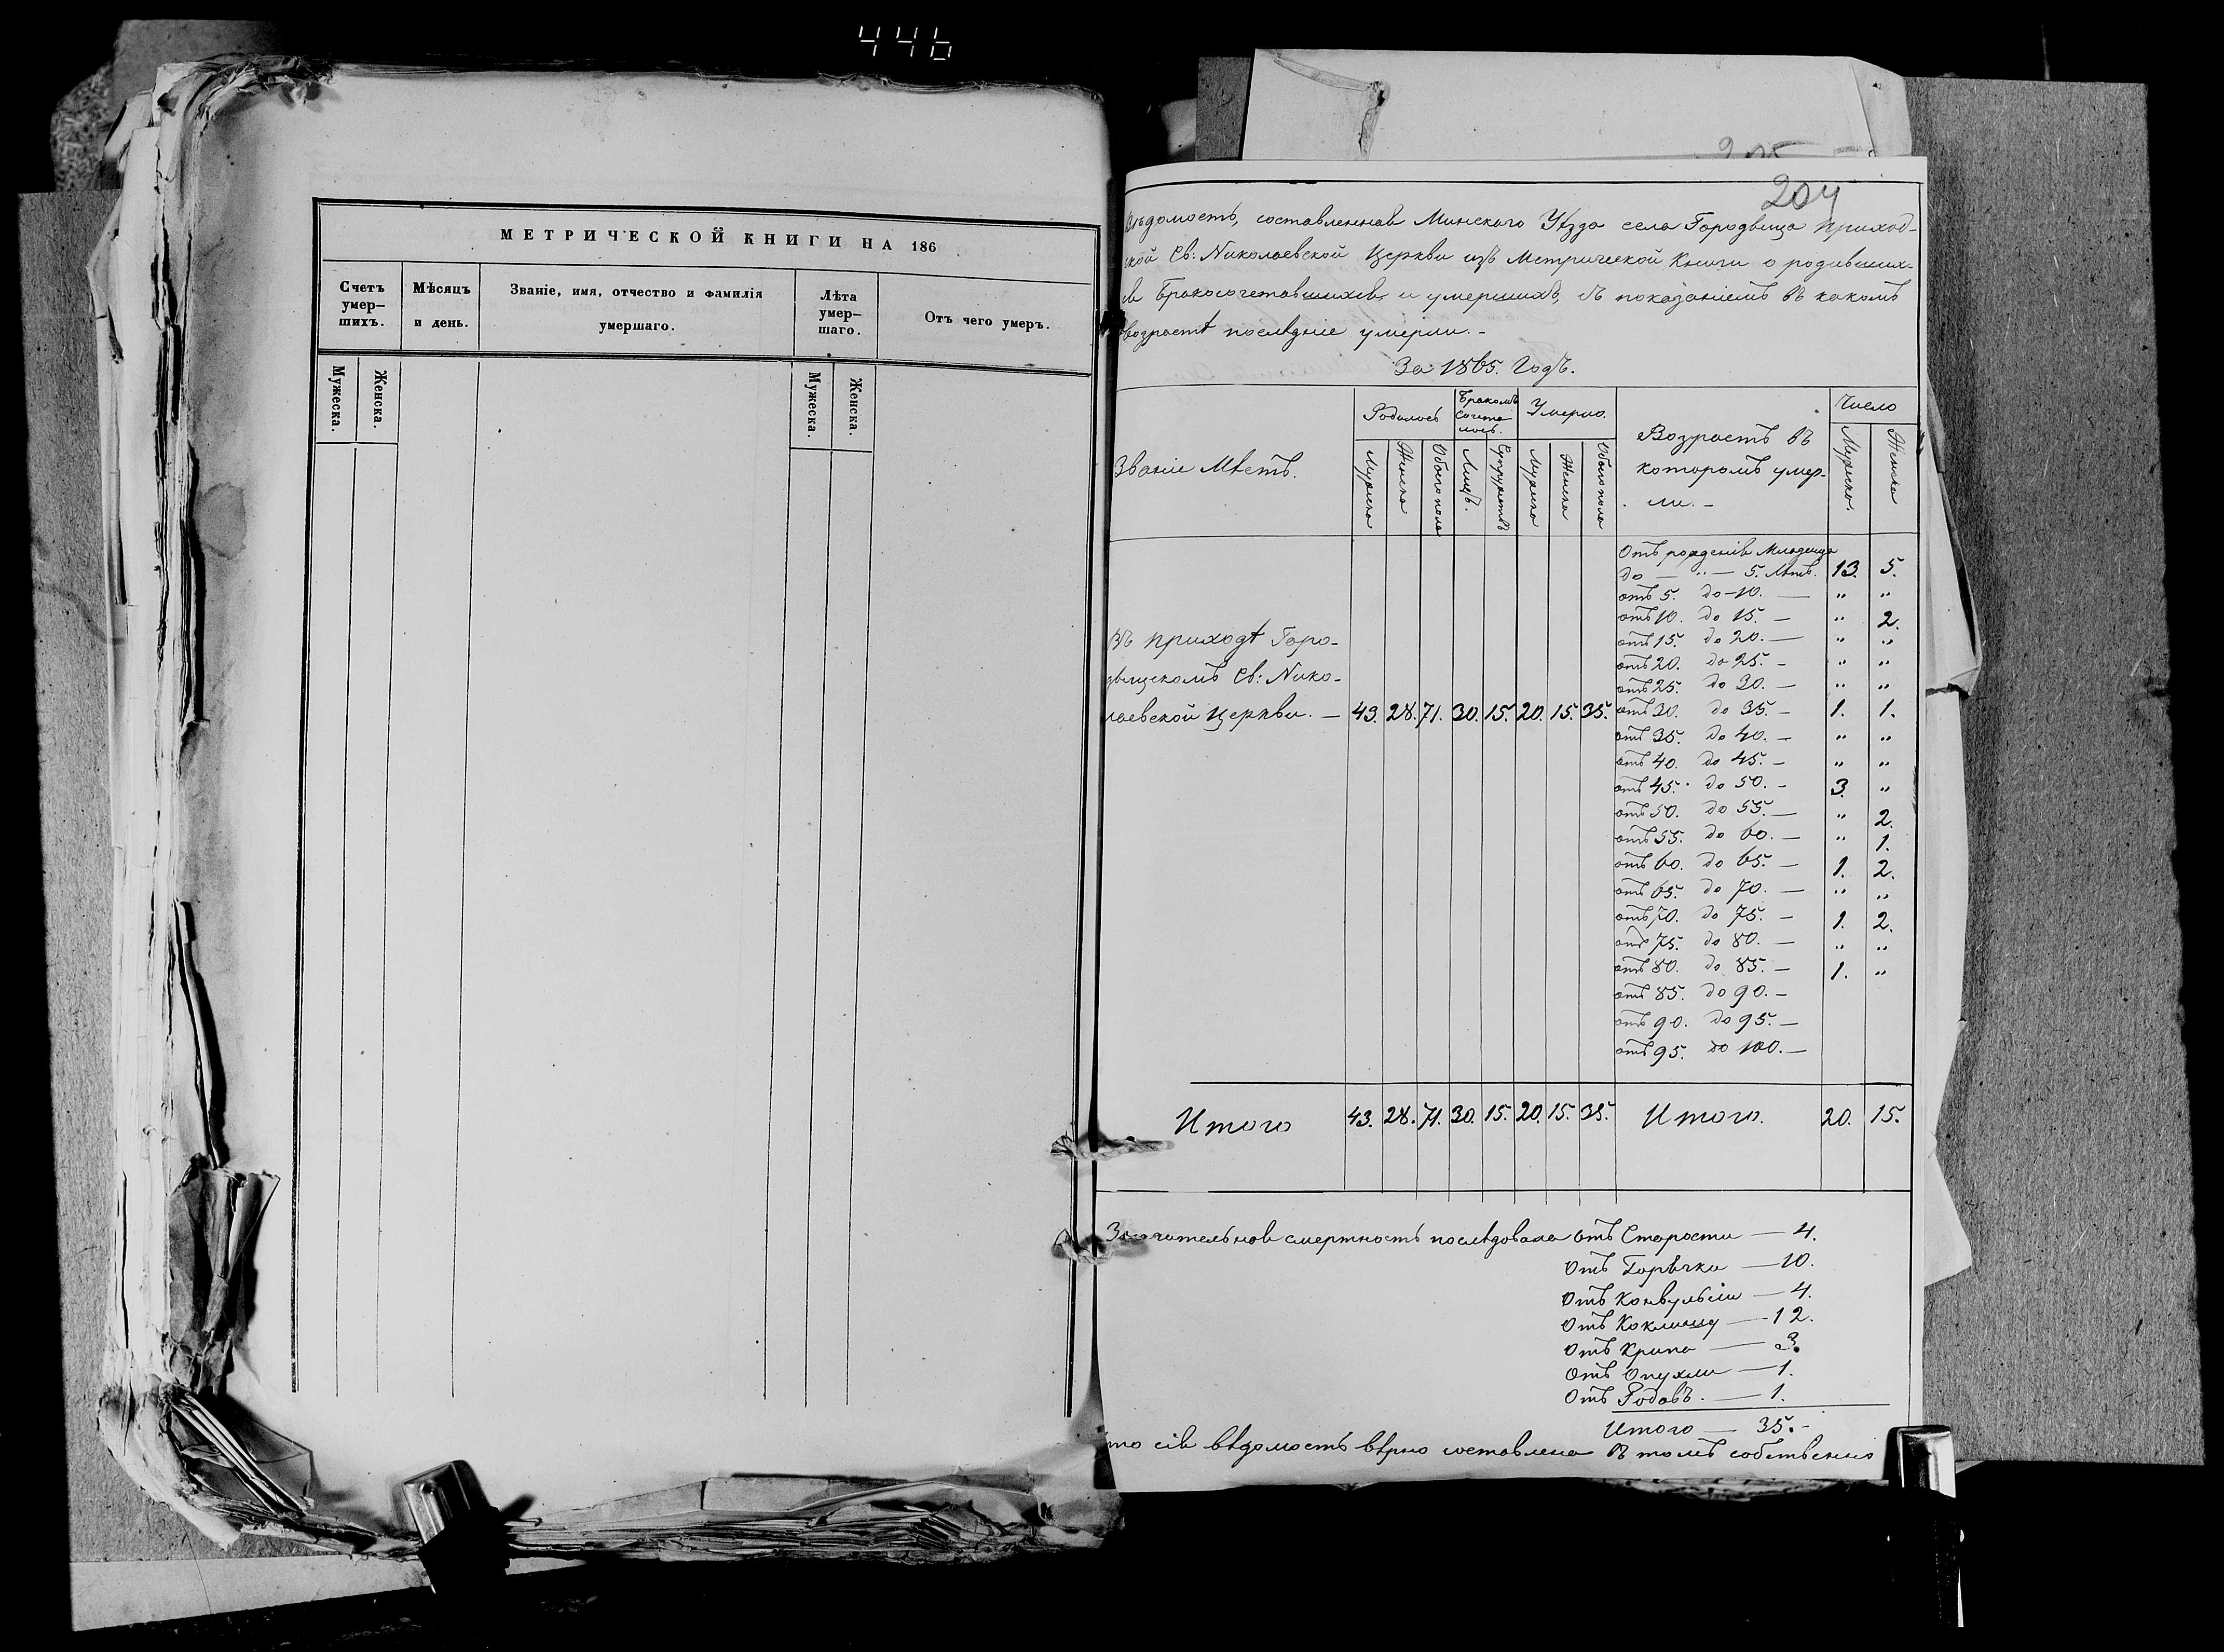 446
МЕТРИЧЕСКОЙ КНИГИ НА 186
Счетъ умер-шихъ.
Мѣсяцъ и день.
Званіе, имя, отчество и фамилія умершаго.
Лѣта умер-шаго.
Отъ чего умеръ.
Мужеска.
Женска.
Мужеска.
Женска.
204
Вѣдомость, составленная Минскаго Уѣзда села Городвища приход-
ской Св: Николаевской Церкви изъ Метрической Книги о родивших-
ся Бракосочетавшихся, и умершихъ, съ показаніемъ въ какомъ
возрастѣ послѣдніе умерли. -
За 1865. Годъ.
Званіе Мѣстъ.
Родилось
Бракомъ сочета-лось.
Умерло.
Возрастъ въ
которомъ умер-
ли. -
Число
Мужеска
Женска
Обоего пола
Лицъ.
Супружествъ
Мужеска
Женска
Обоего пола
Мужеска.
Женска
Отъ рожденія Младенца
до — " — 5. Лѣтъ. 13. 5.
отъ 5. до - 10. — " "
отъ 10. до 15. — " 2.
отъ 15. до 20. — " "
отъ 20. до 25. — " "
отъ 25. до 30. — " "
Въ приходѣ Горо-
двищскомъ Св: Нико-
лаевской Церкви. — 43. 28. 71. 30. 15. 20. 15. 35. отъ 30. до 35. — 1. 1.
отъ 35. до 40. — " "
отъ 40. до 45. — " "
отъ 45. до 50. — 3. "
отъ 50. до 55. — " 2.
отъ 55. до 60. — " 1.
отъ 60. до 65. — 1. 2.
отъ 65. до 70. — " "
отъ 70. до 75. — 1. 2.
отъ 75. до 80. — " "
отъ 80. до 85. — 1. "
отъ 85. до 90. —
отъ 90. до 95. —
отъ 95. до 100. —
Итого 43. 28. 71. 30. 15. 20. 15. 35. Итого. 20. 15.
Значительная смертность послѣдовала отъ Старости — 4.
Отъ Горячки — 10.
Отъ Конвульсіи — 4.
Отъ Коклишу — 12.
Отъ Крипа — 3.
Отъ Опухли — 1.
Отъ Родовъ. — 1.
Итого — 35. -
что сія вѣдомость вѣрно составлена въ томъ собственно